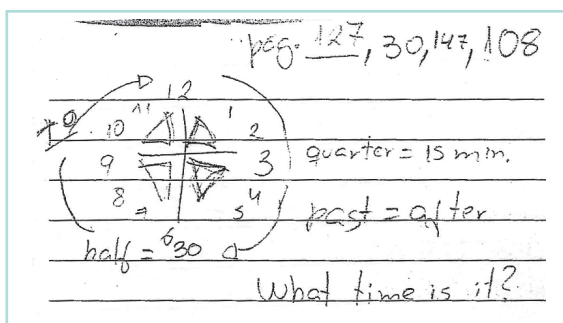 pag. 127, 30, 147, 108
12
11 1
To 10 2
9 3 quarter = 15 min.
8 4
7 5 past = after
6
half = 30
What time is it?